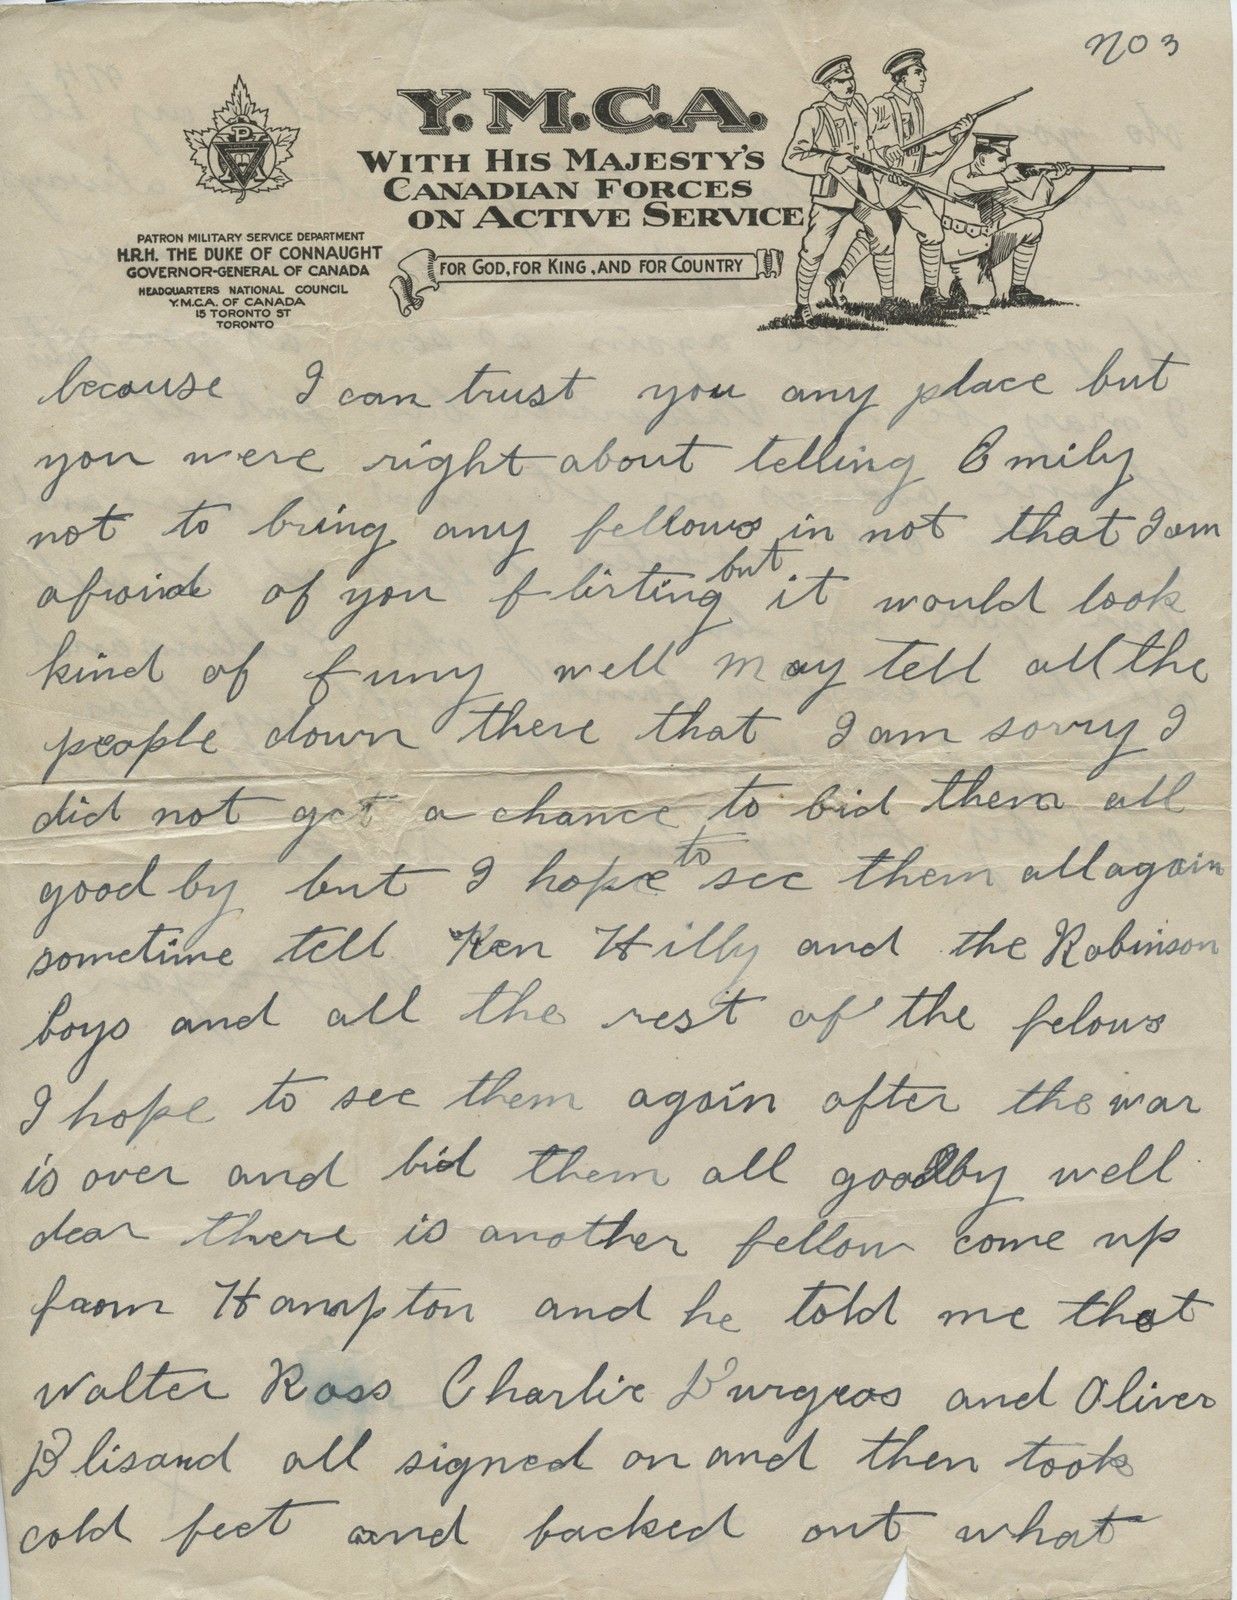 no 3
Y.M.C.A.
WITH HIS MAJESTY'S
CANADIAN FORCES
ON ACTIVE SERVICE
FOR GOD, FOR KING, AND FOR COUNTRY
PATRON MILITARY SERVICE DEPARTMENT
H.R.H. THE DUKE OF CONNAUGHT
GOVERNOR-GENERAL OF CANADA
HEADQUARTERS NATIONAL COUNCIL
Y.M.C.A. OF CANADA
15 TORONTO ST
TORONTO
because I can trust you any place but
you were right about telling Emily
not to bring any fellows in not that I am
afraid of you flirting but it would look
kind of funy well May tell all the
people down there that I am sorry I
did not get a chance to bid them all
good by but I hope to see them all again
sometime tell Ken Hilly and the Robinson
boys and all the rest of the felows
I hope to see them again after the war
is over and bid them all goodby well
dear there is another fellow come up
from Hampton and he told me that
Walter Ross Charlie Burgeos and Oliver
Blisard all signed on and then took
cold feet and backed out what